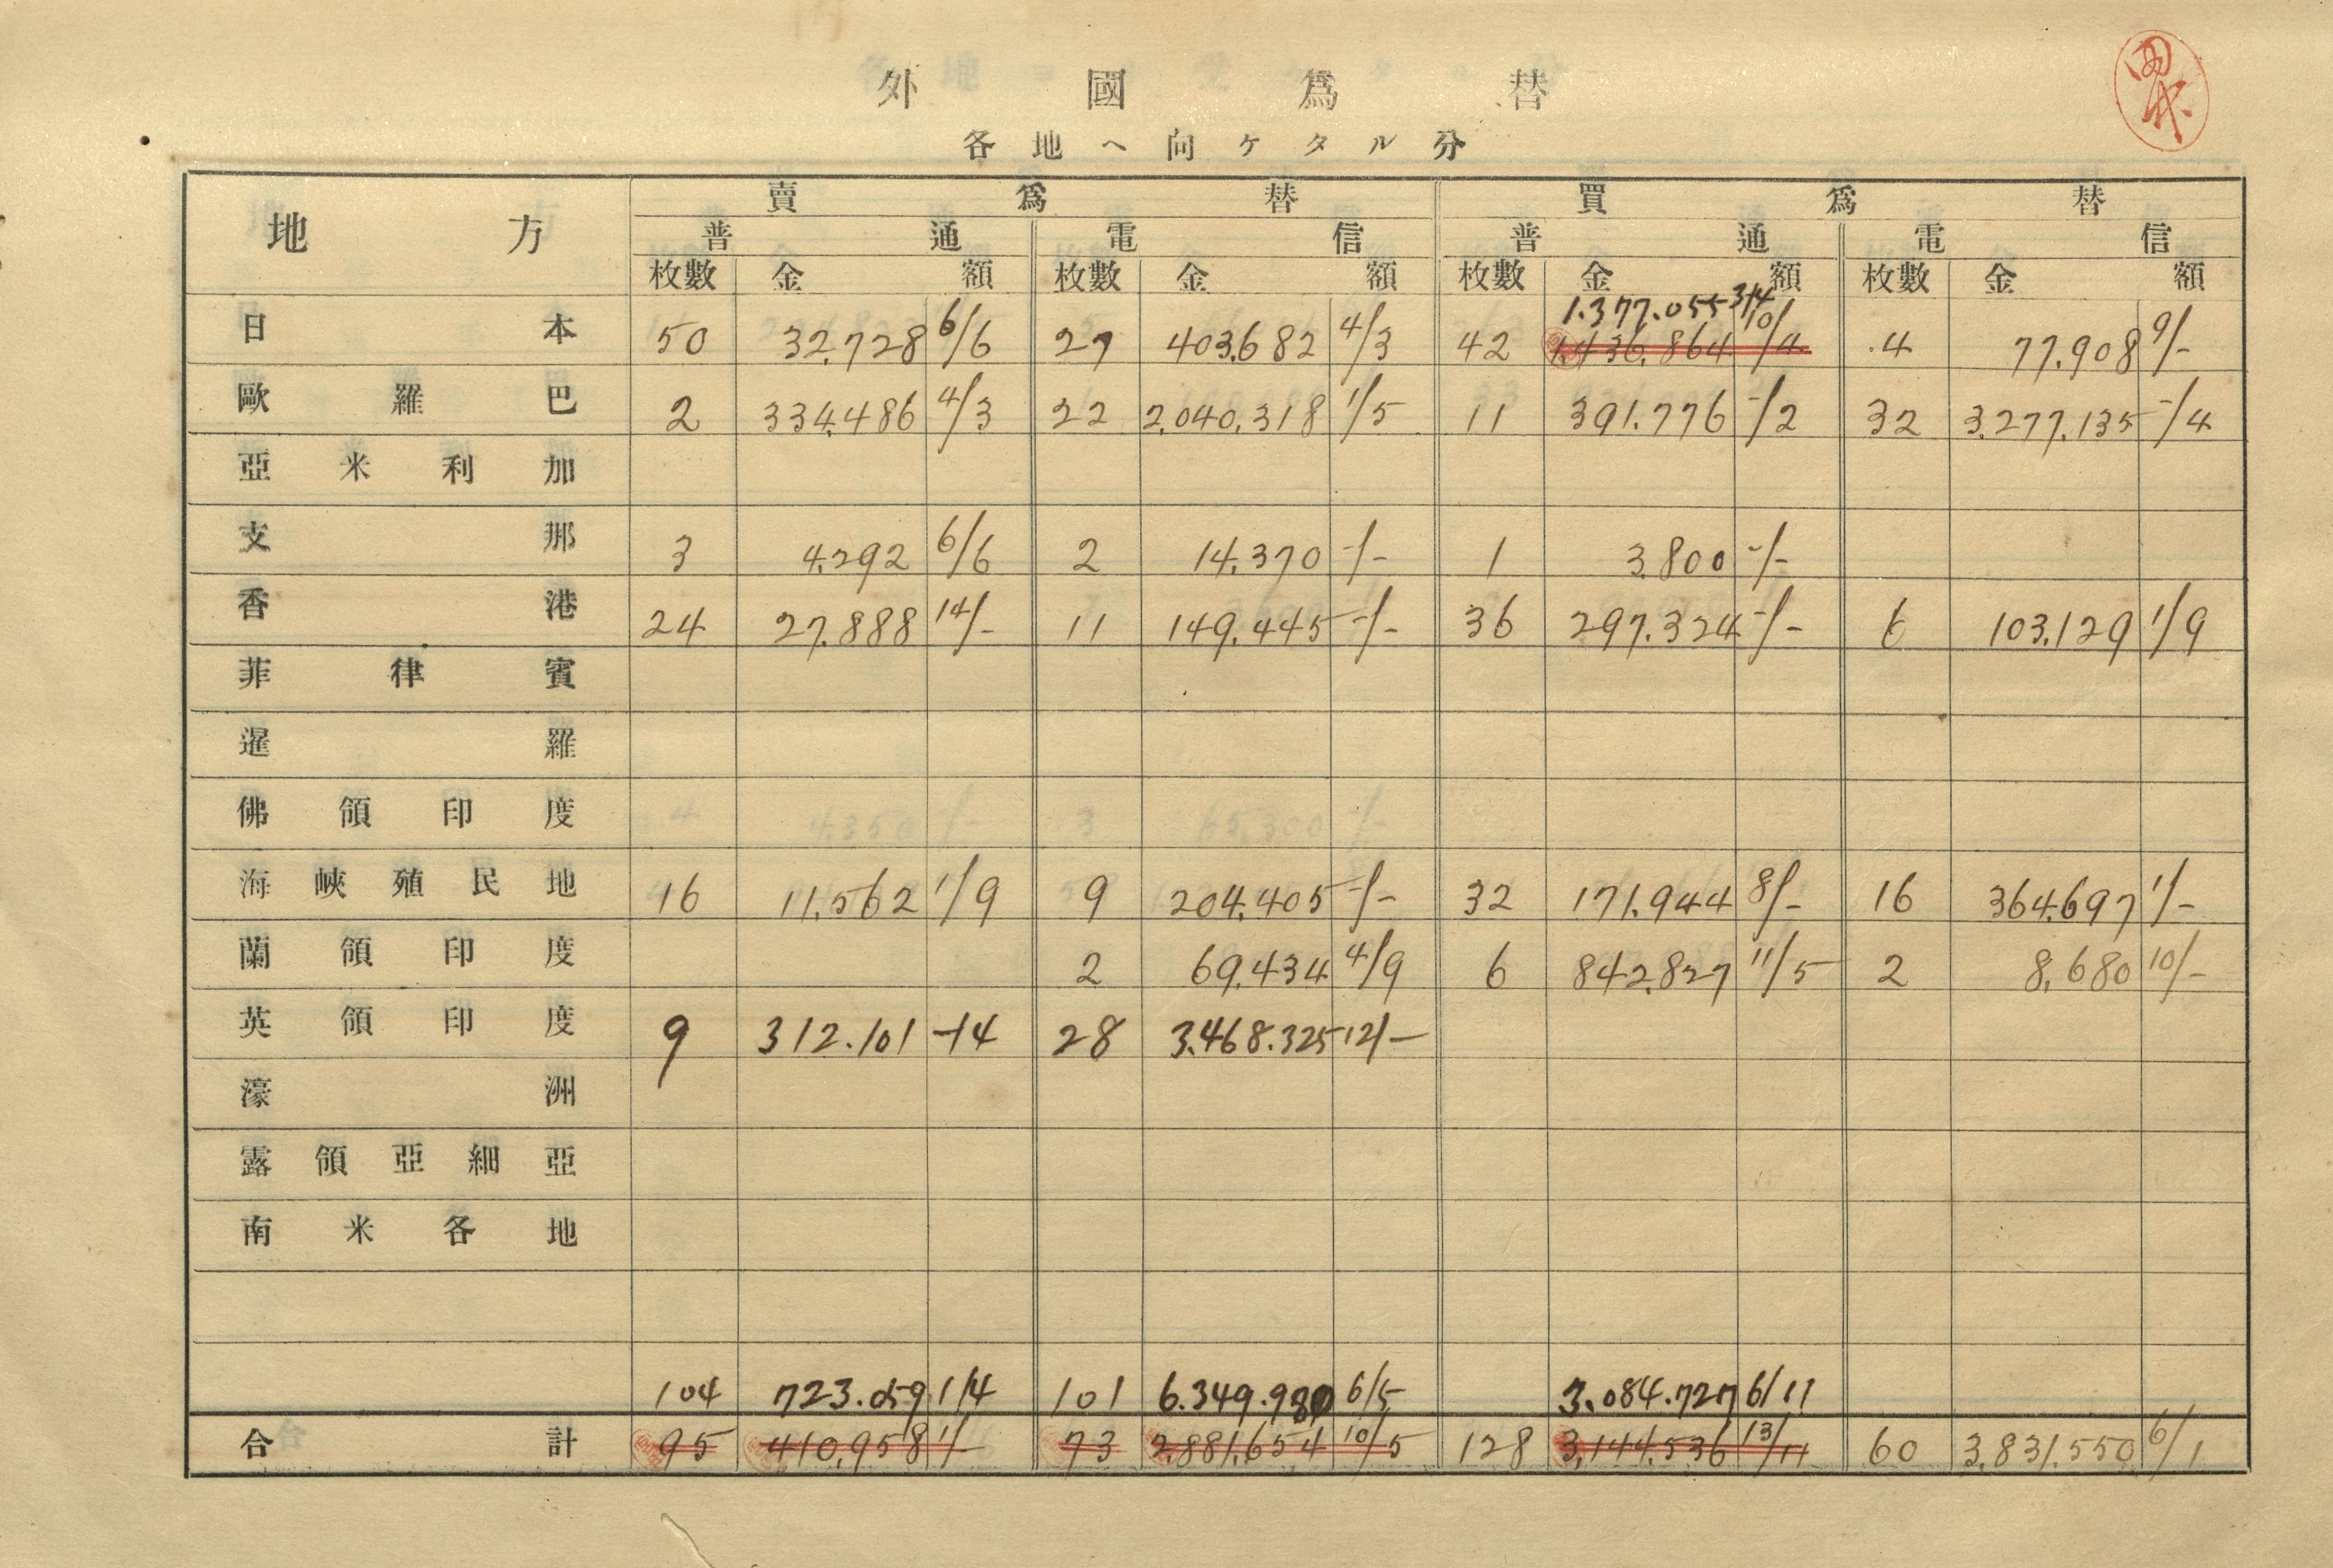 外國爲替
各地ヘ向ケタル分
地方 賣爲替 買爲替
普通 電信 普通 電信
枚數 金額 枚數 金額 枚數 金額 枚數 金額
1.377.055 3/4
日本 50 32.728 6/6 27 403.682 4/3 42 1.436.864 10/4 4 77.908 9/-
歐羅巴 2 334.486 4/3 22 2.040.318 1/5 11 391.776 -/2 32 3.277.135 -/4
亞米利加
支那 3 4.292 6/6 2 14.370 -/- 1 3.800 -/-
香港 24 27.888 14/- 11 149.445 -/- 36 297.324 -/- 6 103.129 1/9
菲律賓
暹羅
佛領印度
海峽殖民地 16 11.562 1/9 9 204.405 -/- 32 171.944 8/- 16 364.697 1/-
蘭領印度 2 69.434 4/9 6 842.827 11/5 2 8.680 10/-
英領印度 9 312.101 -/4 28 3.468.325 12/-
濠洲
露領亞細亞
南米各地
104 723.059 1/4 101 6.349.980 6/5 3.084.727 6/11
合計 95 410.958 1/- 73 2.881.654 10/5 128 3.144.536 13/11 60 3.831.550 6/1